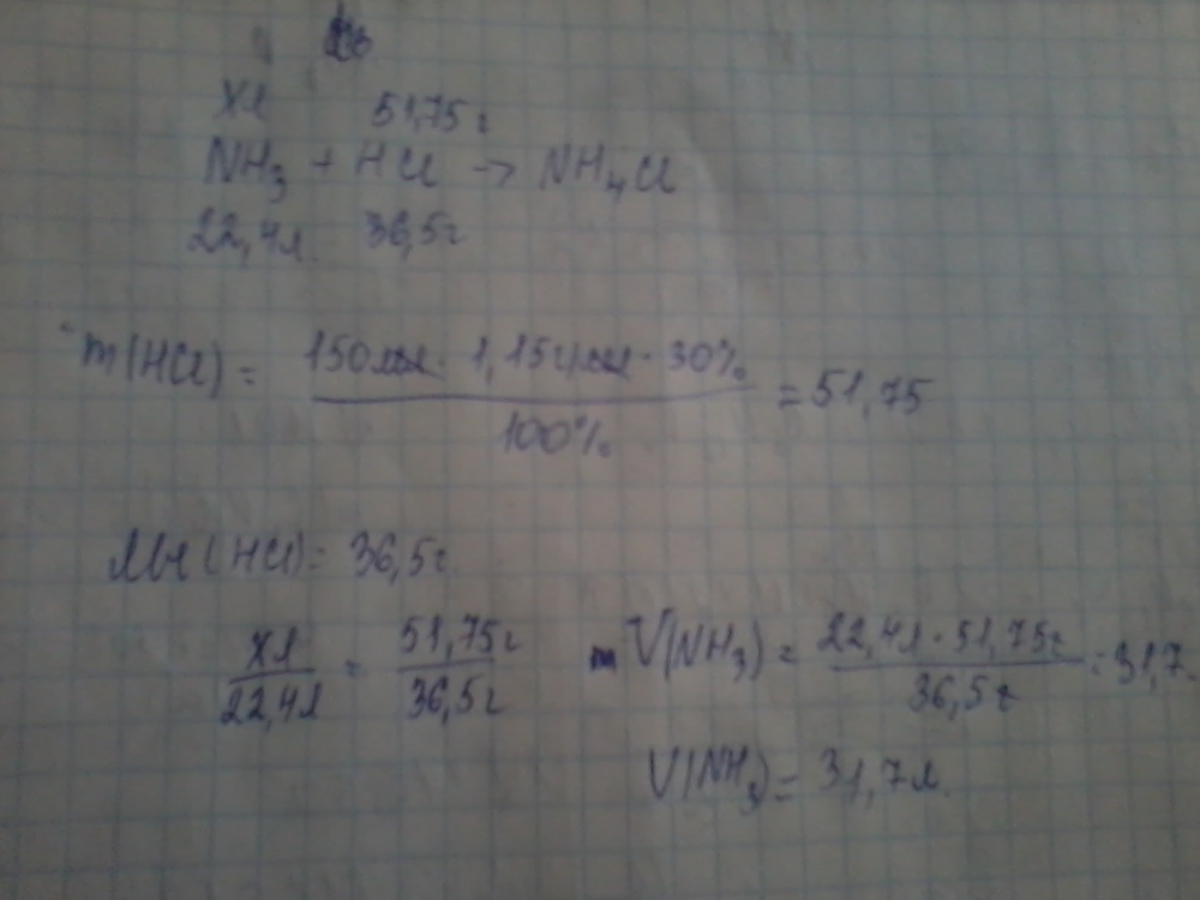 Xл 51,75 г
NH₃ + HCl → NH₄Cl
22,4 л. 36,5 г
m(HCl) = (150 мл · 1,15 г/мл · 30%) / 100% = 51,75
(HCl) = 36,5 г.
Xл / 22,4 л = 51,75 г / 36,5 г V(NH₃) = (22,4 л · 51,75 г) / 36,5 г = 31,7
V(NH₃) = 31,7 л.